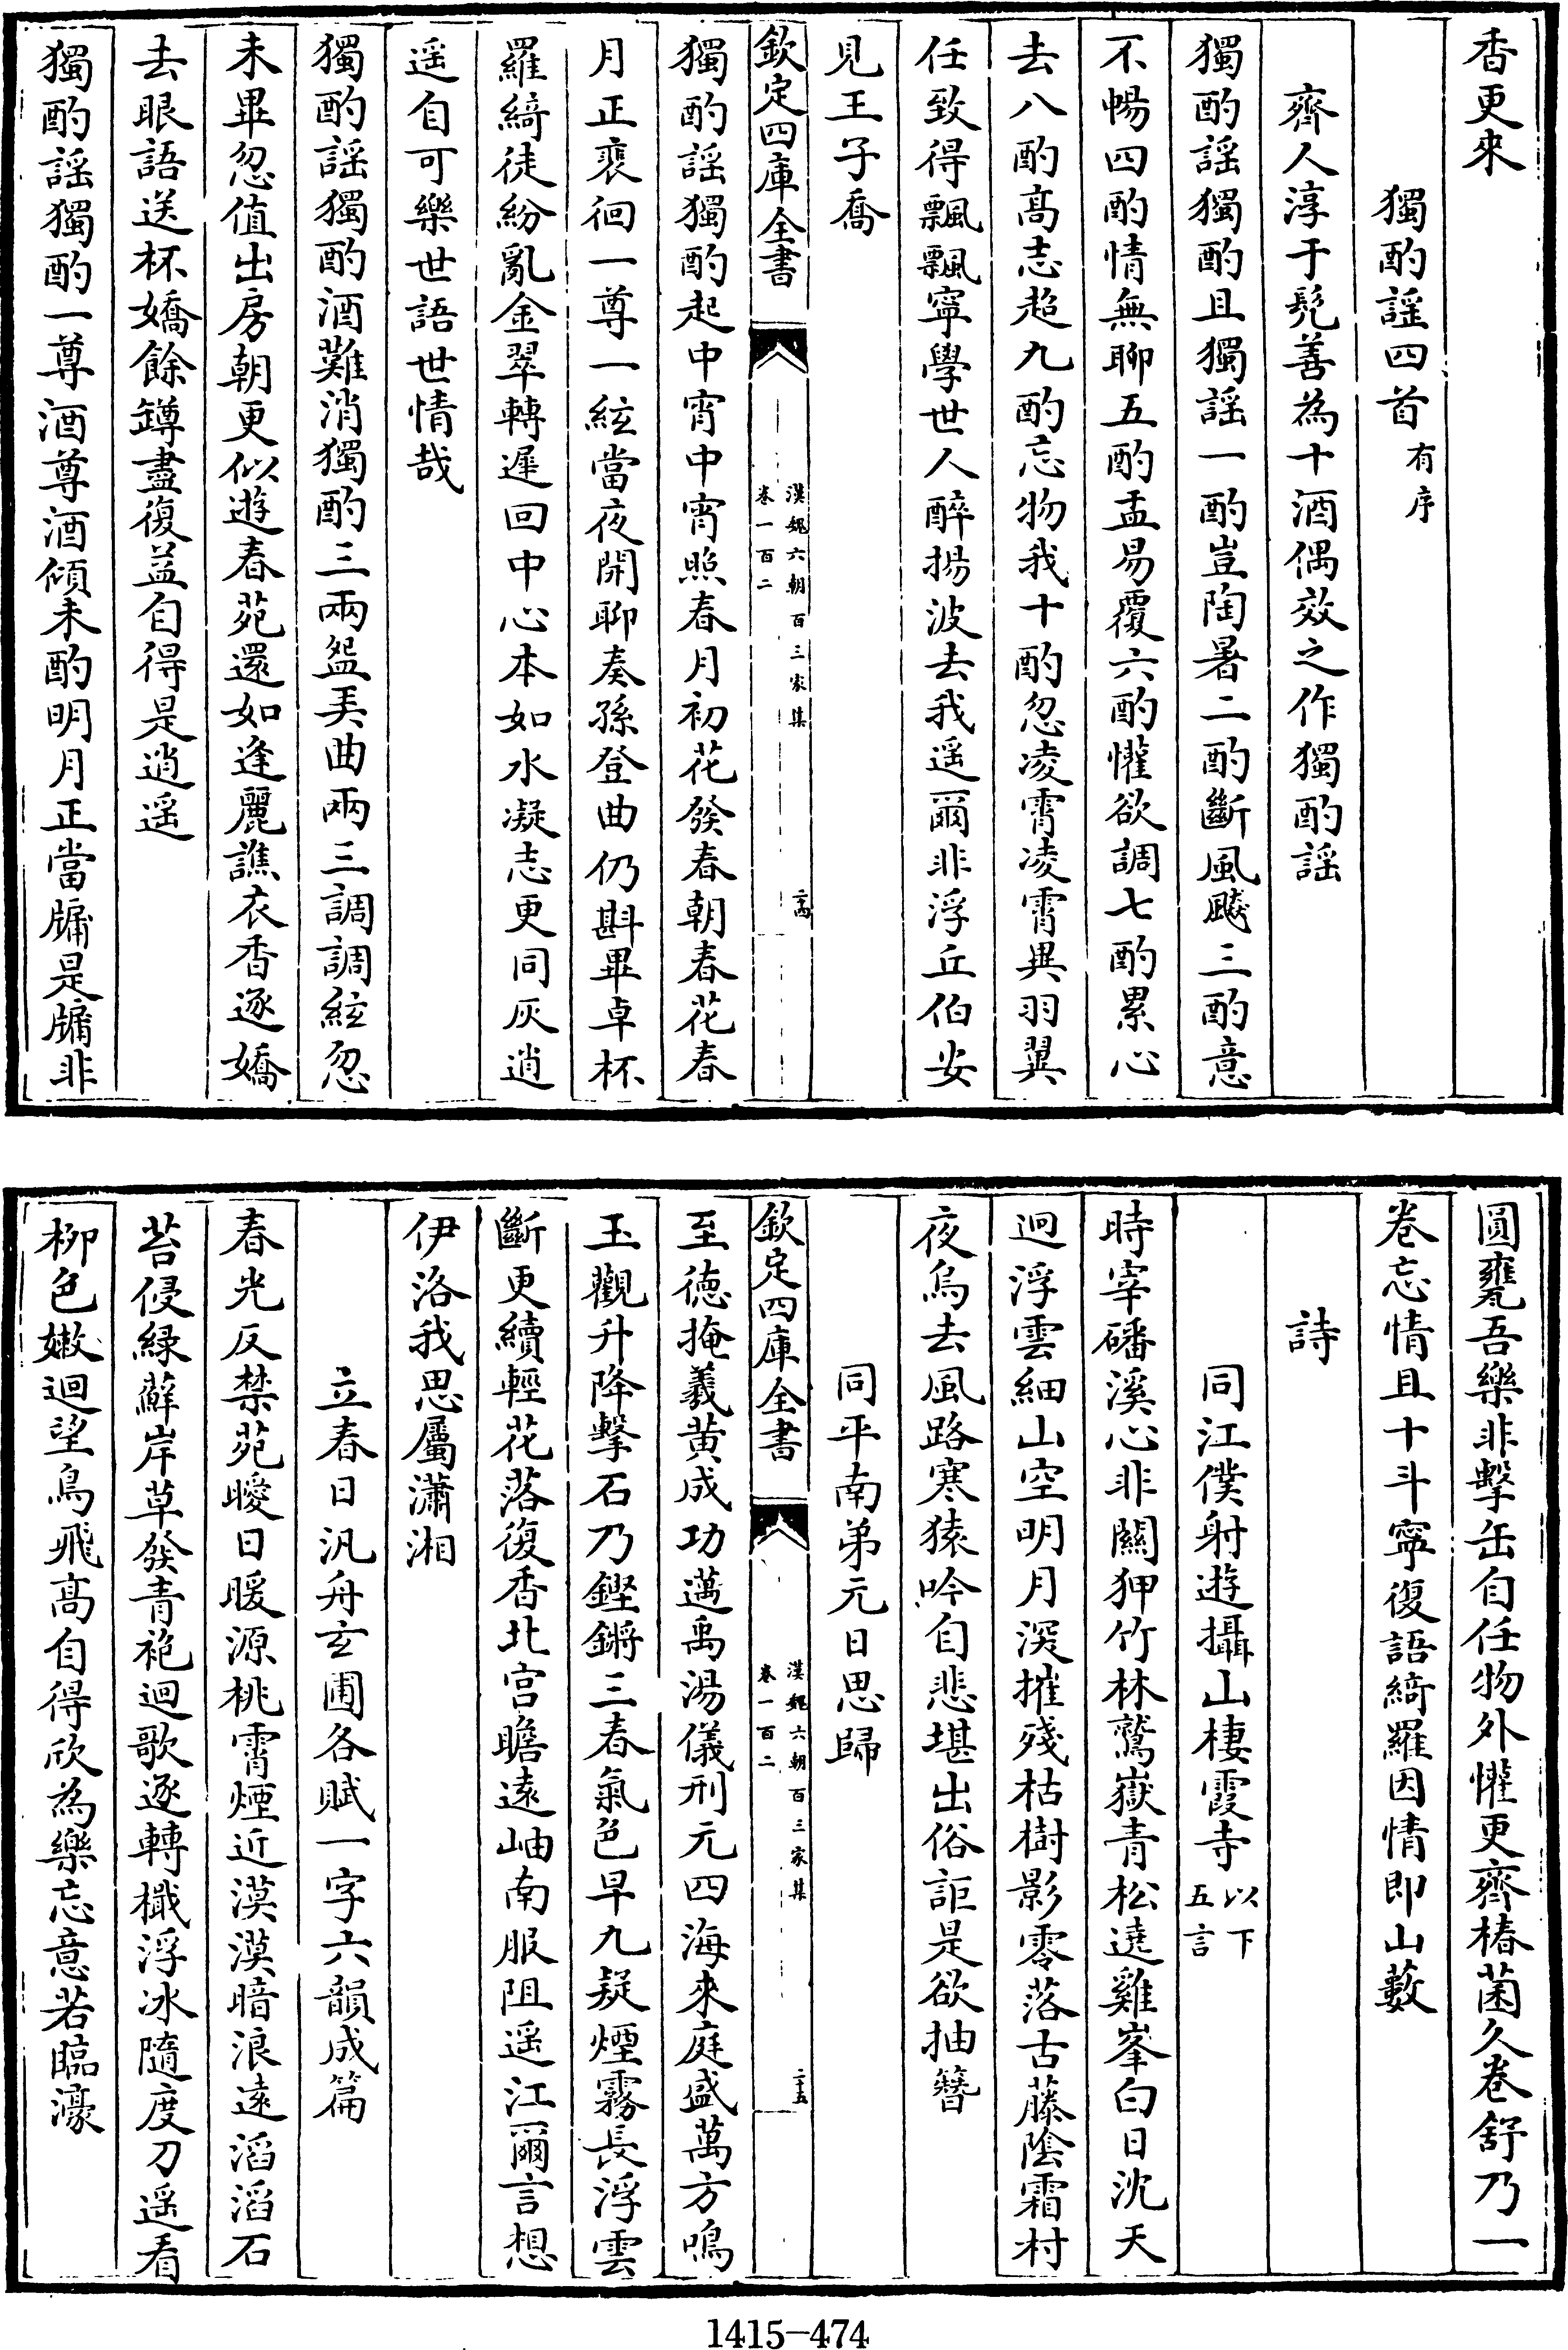 香更來
獨酌謡四首有序
齊人淳于髠善為十酒偶效之作獨酌謡
獨酌謡獨酌且獨謡一酌豈陶暑二酌斷風飇三酌意
不暢四酌情無聊五酌盂易覆六酌懽欲調七酌累心
去八酌髙志超九酌忘物我十酌忽凌霄凌霄異羽翼
任致得飄飄寧學世人醉揚波去我遥爾非浮丘伯安
見王子喬
欽定四庫全書
漢魏六朝百三家集
卷一百二
二十四
獨酌謡獨酌起中宵中宵照春月初花發春朝春花春
月正裵徊一尊一絃當夜開聊奏孫登曲仍斟畢卓杯
羅綺徒紛亂金翠轉遲回中心本如水凝志更同灰逍
遥自可樂世語世情哉
獨酌謡獨酌酒難消獨酌三兩盌弄曲兩三調調絃忽
未畢忽值出房朝更似遊春苑還如逢麗譙衣香逐嬌
去眼語送杯嬌餘罇盡復益自得是逍遥
獨酌謡獨酌一尊酒尊酒傾未酌明月正當牖是牖非
圓甕吾樂非擊缶自任物外懽更齊椿菌久卷舒乃一
卷忘情且十斗寧復語綺羅因情即山藪
詩
同江僕射遊攝山棲霞寺以下五言
時宰磻溪心非關狎竹林鷲嶽青松遶雞峯白日沈天
迥浮雲細山空明月深摧殘枯樹影零落古藤陰霜村
夜烏去風路寒猿吟自悲堪出俗詎是欲抽簪
同平南弟元日思歸
欽定四庫全書
漢魏六朝百三家集
卷一百二
二十五
至徳掩羲黄成功邁禹湯儀刑元四海來庭盛萬方鳴
玉觀升降擊石乃鏗鏘三春氣色早九疑煙霧長浮雲
斷更續輕花落復香北宫瞻遠岫南服阻遥江爾言想
伊洛我思屬瀟湘
立春日汎舟玄圃各賦一字六韻成篇
春光反禁苑曖日暖源桃霄煙近漠漠暗浪遠滔滔石
苔侵緑蘚岸草發青袍迴歌逐轉檝浮冰隨度刀遥看
柳色嫩迴望鳥飛髙自得欣為樂忘意若臨濠
1415-474